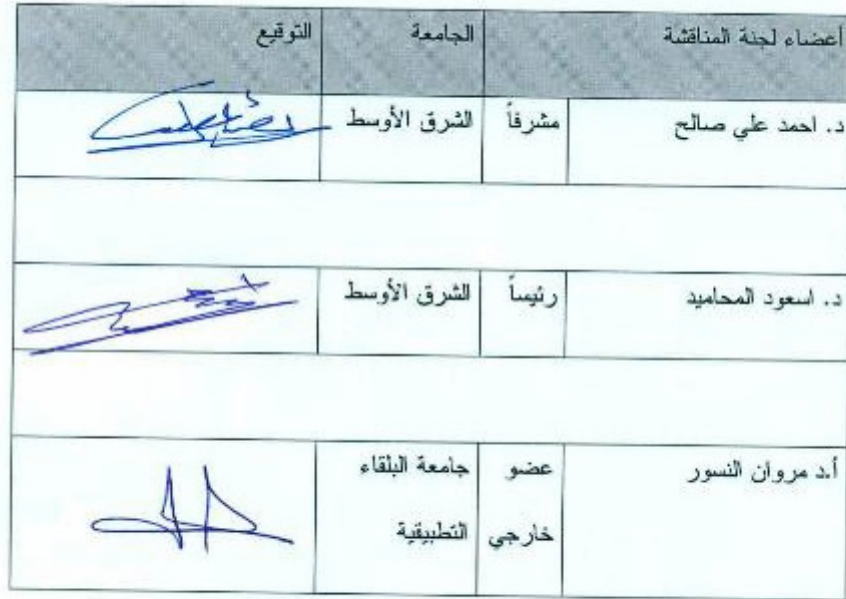 أعضاء لجنة المناقشة الجامعة التوقيع
د. احمد علي صالح مشرفاً الشرق الأوسط
د. اسعود المحاميد رئيساً الشرق الأوسط
أ.د مروان النسور عضو جامعة البلقاء
خارجي التطبيقية